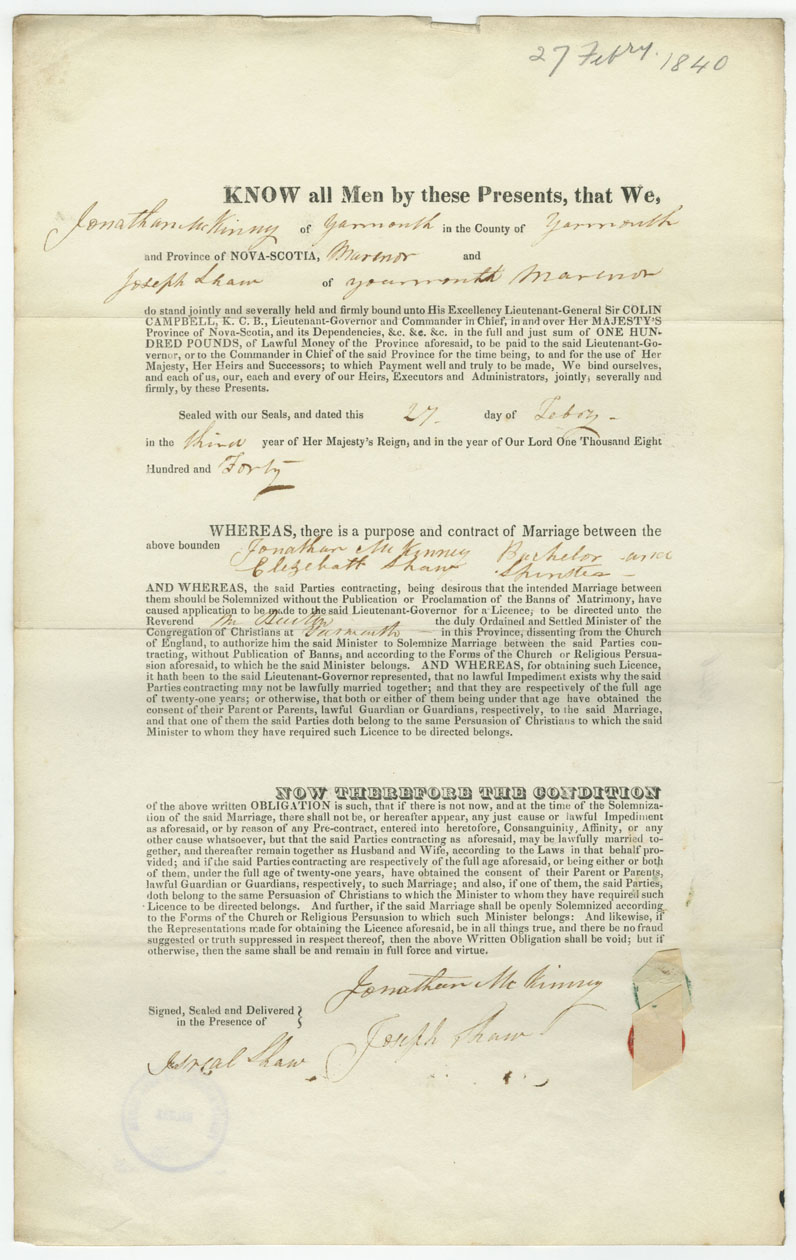 27 Febry. 1840
KNOW all Men by these Presents, that We,
Jonathan McKinny of Yarmouth in the County of Yarmouth
and Province of NOVA-SCOTIA, Marenor and
Joseph Shaw of yourmouth Marenor
do stand jointly and severally held and firmly bound unto His Excellency Lieutenant-General Sir COLIN
CAMPBELL, K. C. B., Lieutenant-Governor and Commander in Chief, in and over Her MAJESTY'S
Province of Nova-Scotia, and its Dependencies, &c. &c. &c. in the full and just sum of ONE HUN-
DRED POUNDS, of Lawful Money of the Province aforesaid, to be paid to the said Lieutenant-Go-
vernor, or to the Commander in Chief of the said Province for the time being, to and for the use of Her
Majesty, Her Heirs and Successors; to which Payment well and truly to be made, We bind ourselves,
and each of us, our, each and every of our Heirs, Executors and Administrators, jointly, severally and
firmly, by these Presents.
Sealed with our Seals, and dated this 27 day of Febry
in the third year of Her Majesty's Reign, and in the year of Our Lord One Thousand Eight
Hundred and Forty
WHEREAS, there is a purpose and contract of Marriage between the
above bounden Jonathan McKinney Bachelor and
Elezebath Shaw Spinster
AND WHEREAS, the said Parties contracting, being desirous that the intended Marriage between
them should be Solemnized without the Publication or Proclamation of the Banns of Matrimony, have
caused application to be made to the said Lieutenant-Governor for a Licence, to be directed unto the
Reverend the duly Ordained and Settled Minister of the
Congregation of Christians at Yarmouth in this Province, dissenting from the Church
of England, to authorize him the said Minister to Solemnize Marriage between the said Parties con-
tracting, without Publication of Banns, and according to the Forms of the Church or Religious Persua-
sion aforesaid, to which he the said Minister belongs. AND WHEREAS, for obtaining such Licence,
it hath been to the said Lieutenant-Governor represented, that no lawful Impediment exists why the said
Parties contracting may not be lawfully married together; and that they are respectively of the full age
of twenty-one years; or otherwise, that both or either of them being under that age have obtained the
consent of their Parent or Parents, lawful Guardian or Guardians, respectively, to the said Marriage,
and that one of them the said Parties doth belong to the same Persuasion of Christians to which the said
Minister to whom they have required such Licence to be directed belongs.
NOW THEREFORE THE CONDITION
of the above written OBLIGATION is such, that if there is not now, and at the time of the Solemniza-
tion of the said Marriage, there shall not be, or hereafter appear, any just cause or lawful Impediment
as aforesaid, or by reason of any Pre-contract, entered into heretofore, Consanguinity, Affinity, or any
other cause whatsoever, but that the said Parties contracting as aforesaid, may be lawfully married to-
gether, and thereafter remain together as Husband and Wife, according to the Laws in that behalf pro-
vided; and if the said Parties contracting are respectively of the full age aforesaid, or being either or both
of them, under the full age of twenty-one years, have obtained the consent of their Parent or Parents,
lawful Guardian or Guardians, respectively, to such Marriage; and also, if one of them, the said Parties,
doth belong to the same Persuasion of Christians to which the Minister to whom they have required such
Licence to be directed belongs. And further, if the said Marriage shall be openly Solemnized according
to the Forms of the Church or Religious Persuasion to which such Minister belongs: And likewise, if
the Representations made for obtaining the Licence aforesaid, be in all things true, and there be no fraud
suggested or truth suppressed in respect thereof, then the above Written Obligation shall be void; but if
otherwise, then the same shall be and remain in full force and virtue.
Jonathan McKinney
Signed, Sealed and Delivered
in the Presence of
Joseph Shaw
Isreal Shaw